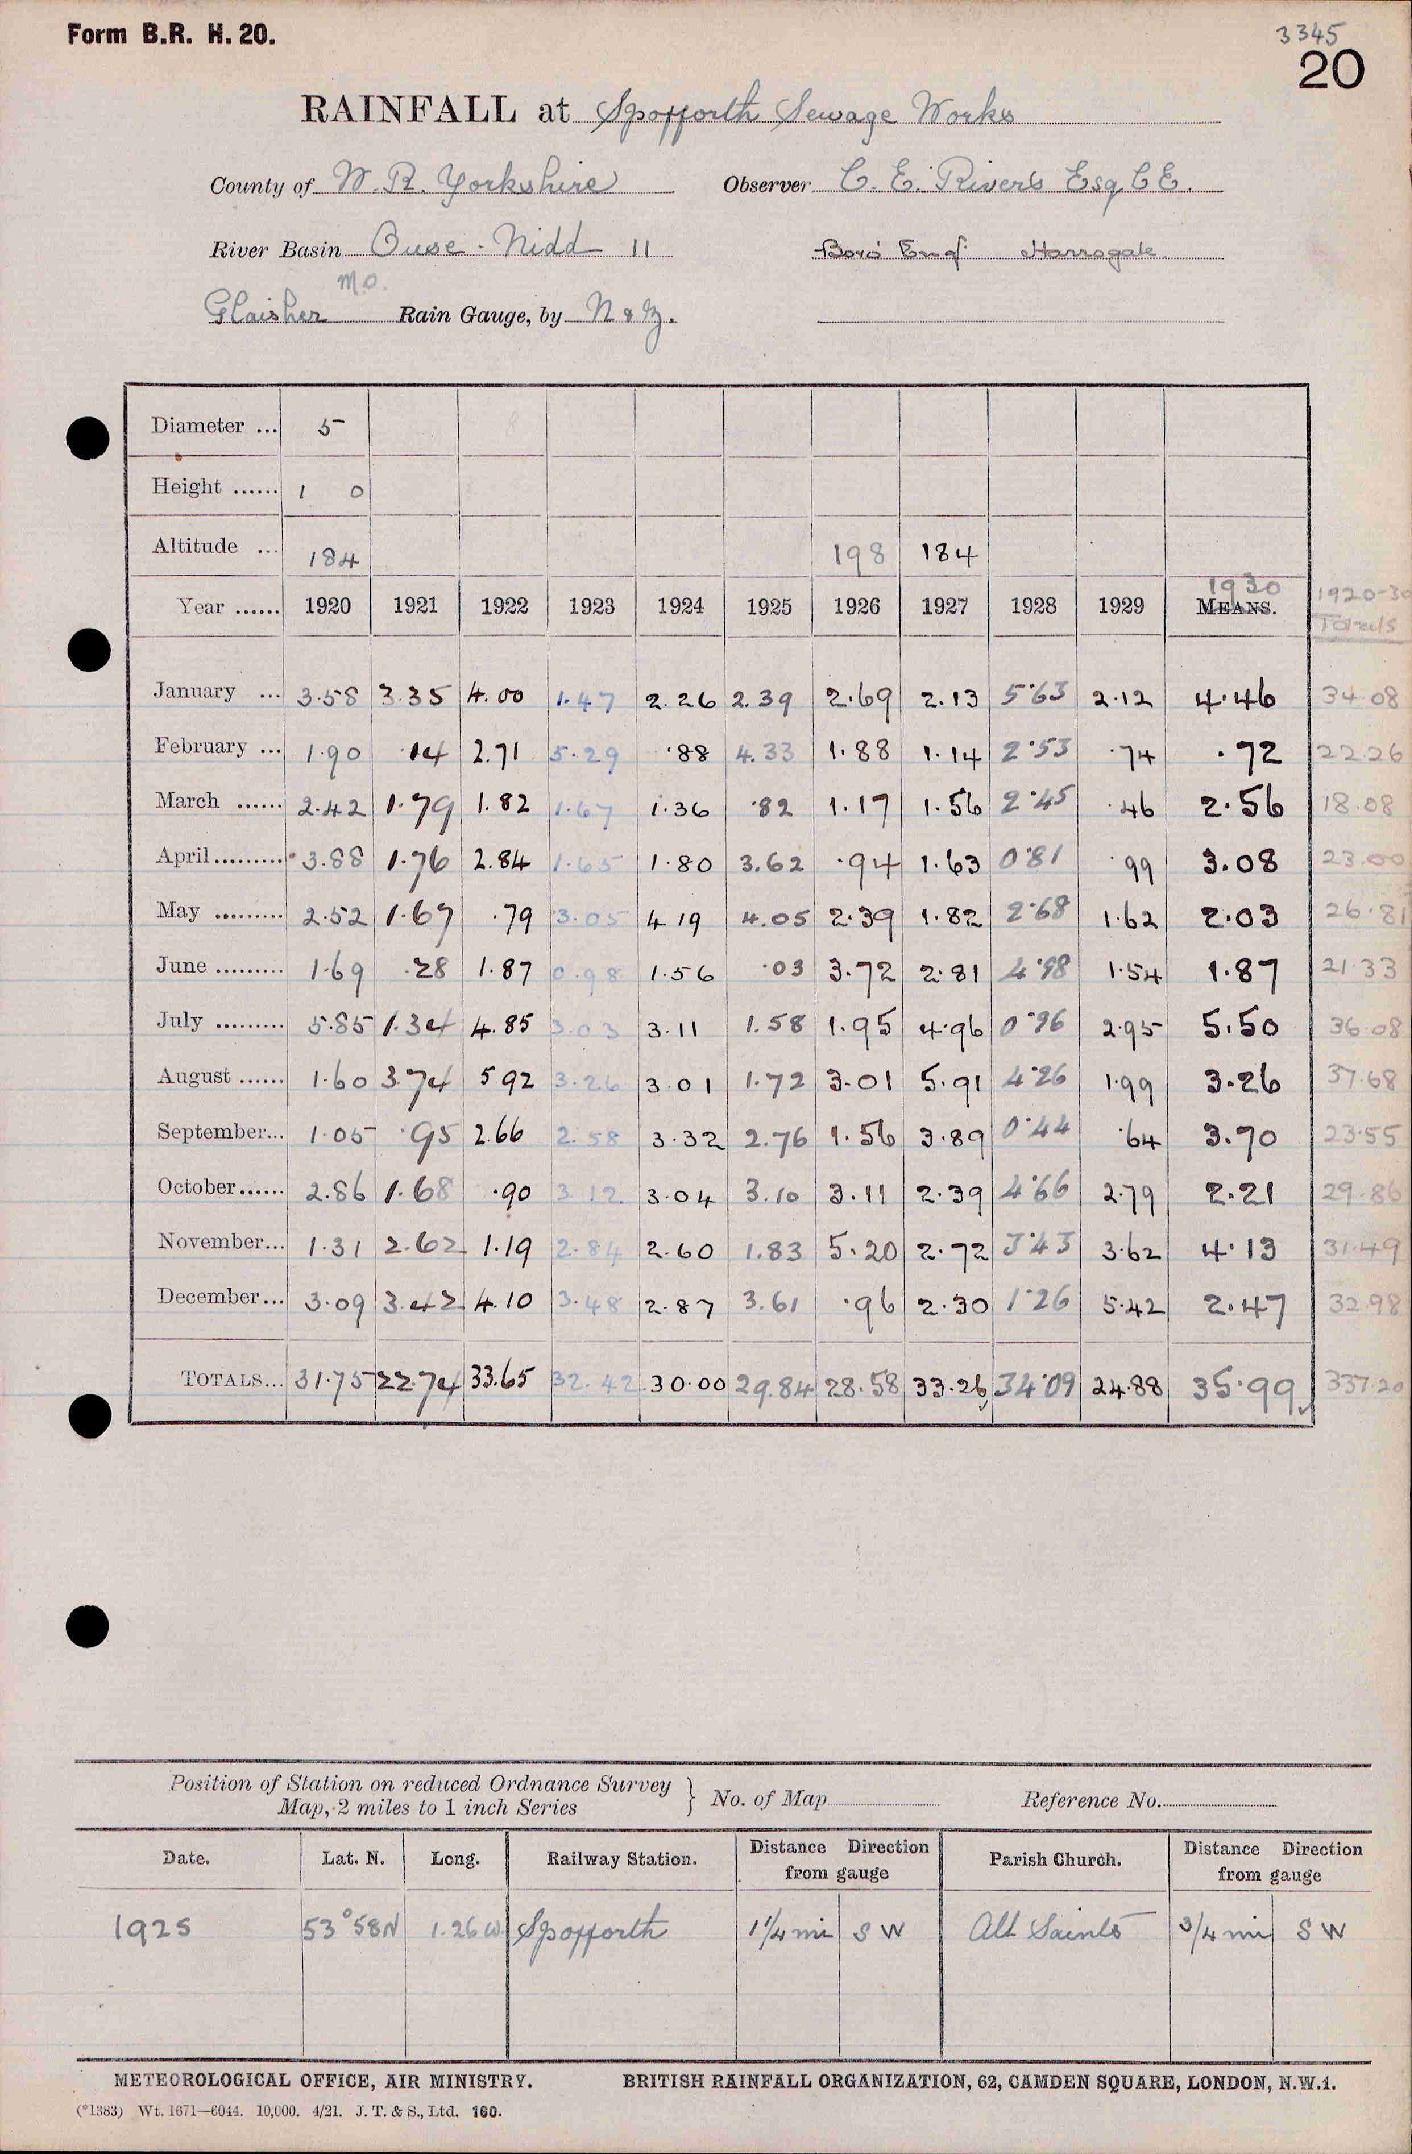 Form B.R. H. 20.
3345
20
RAINFALL at Spofforth Sewage Works
County of W. R. Yorkshire Observer C. E. Rivers Esq C E.
River Basin Ouse - Nidd 11 Boro' Engr Harrogate
M.O.
Glaisher Rain Gauge, by N & Z.
Diameter ... 5
Height ...... 1 0
Altitude ... 184 198 184
1930 1920-30
Year ...... 1920 1921 1922 1923 1924 1925 1926 1927 1928 1929 MEANS. Totals
January ... 3.58 3.35 4.00 1.47 2.26 2.39 2.69 2.13 5.63 2.12 4.46 34.08
February ... 1.90 .14 2.71 5.29 .88 4.33 1.88 1.14 2.53 .74 .72 22.26
March ...... 2.42 1.79 1.82 1.67 1.36 .82 1.17 1.56 2.45 .46 2.56 18.08
April ......... 3.88 1.76 2.84 1.65 1.80 3.62 .94 1.63 0.81 .99 3.08 23.00
May ......... 2.52 1.67 .79 3.05 4 19 4.05 2.39 1.82 2.68 1.62 2.03 26.81
June ......... 1.69 .28 1.87 0.98 1.56 .03 3.72 2.81 4.98 1.54 1.87 21.33
July ......... 5.85 1.34 4.85 3.03 3.11 1.58 1.95 4.96 0.96 2.95 5.50 36.08
August ...... 1.60 3.74 5 92 3.26 3.01 1.72 3.01 5.91 4.26 1.99 3.26 37.68
September... 1.05 .95 2.66 2.58 3.32 2.76 1.56 3.89 0.44 .64 3.70 23.55
October...... 2.86 1.68 .90 3.12 3.04 3.10 3.11 2.39 4.66 2.79 2.21 29.86
November... 1.31 2.62 1.19 2.84 2.60 1.83 5.20 2.72 3.43 3.62 4.13 31.49
December... 3.09 3.42 4.10 3.48 2.87 3.61 .96 2.30 1.26 5.42 2.47 32.98
TOTALS... 31.75 22.74 33.65 32.42 30.00 29.84 28.58 33.26 34.09 24.88 35.99 337.20
Position of Station on reduced Ordnance Survey
Map, 2 miles to 1 inch Series } No. of Map Reference No.
Date. Lat. N. Long. Railway Station. Distance Direction from gauge Parish Church. Distance Direction from gauge
1925 53°58N 1.26W Spofforth 1 1/4 mi S W All Saints 3/4 mi S W
METEOROLOGICAL OFFICE, AIR MINISTRY. BRITISH RAINFALL ORGANIZATION, 62, CAMDEN SQUARE, LONDON, N.W.1.
(*1383) Wt. 1671—6044. 10,000. 4/21. J. T. & S., Ltd. 160.